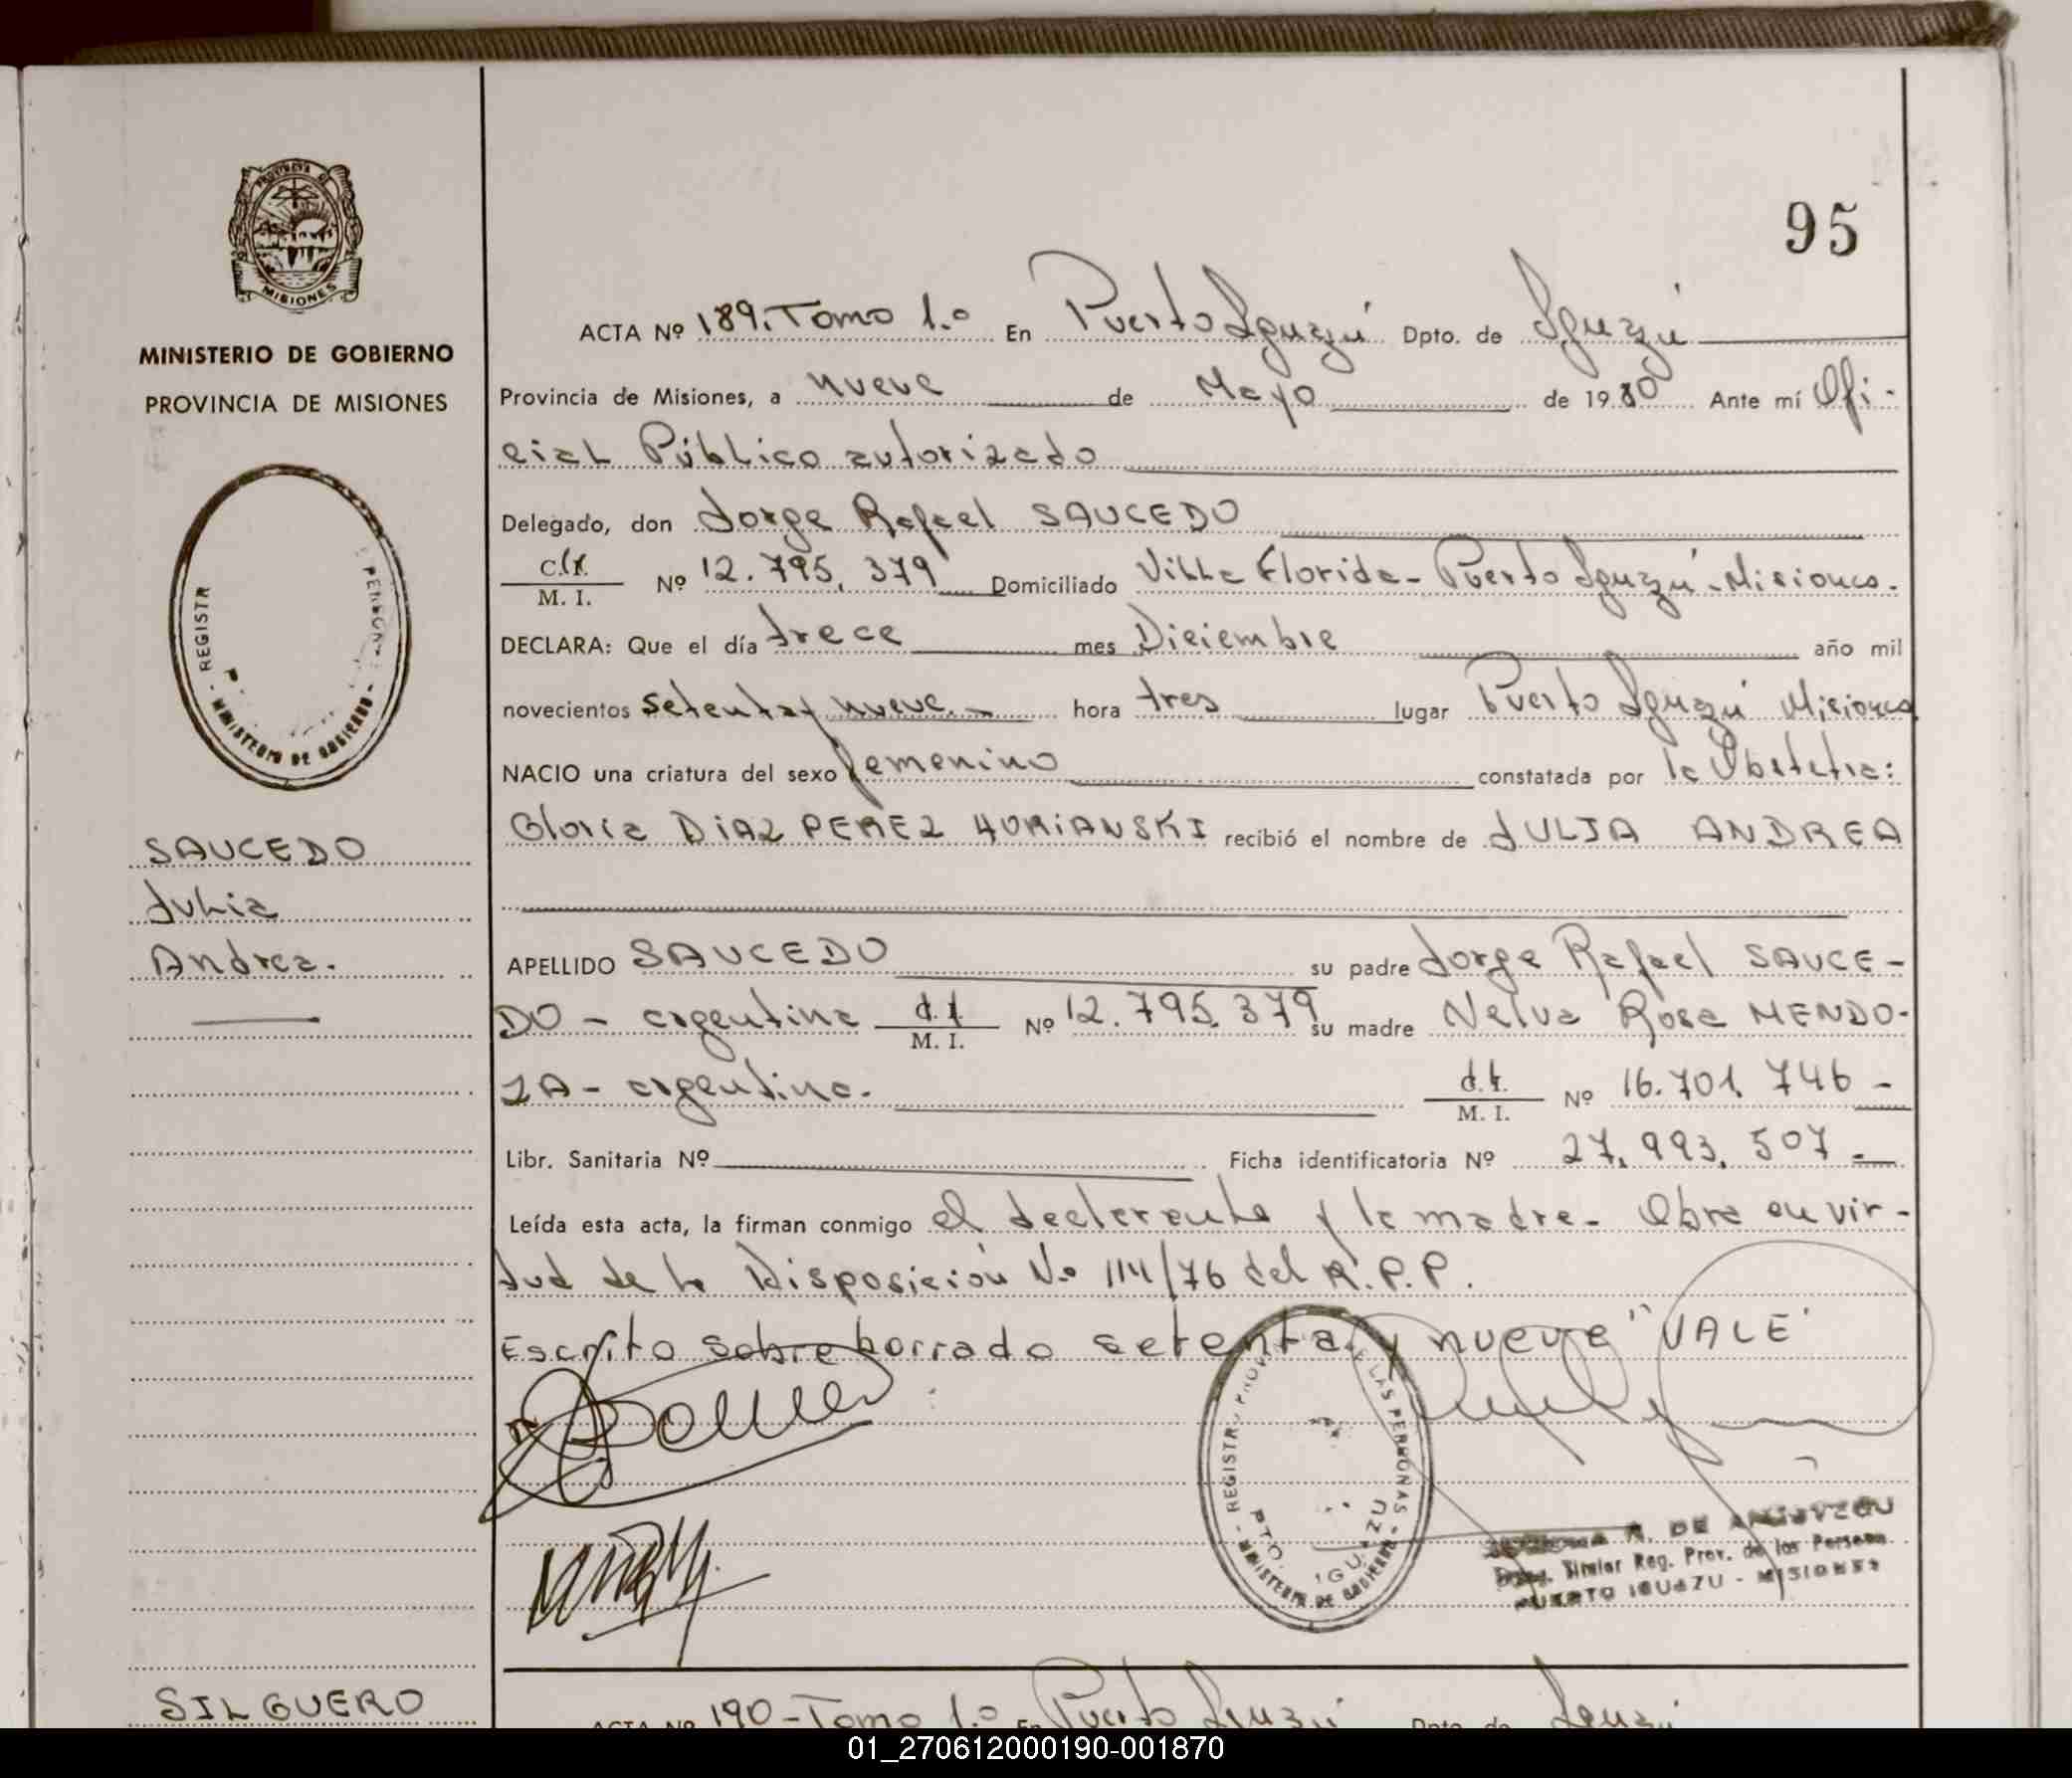 95
MISIONES
MINISTERIO DE GOBIERNO
PROVINCIA DE MISIONES
REGISTR
MINISTERIO DE GOBIERNO
SAUCEDO
Julia
Andrea.
ACTA Nº 189. Tomo 1.º En Puerto Iguazú Dpto. de Iguazú
Provincia de Misiones, a nueve de Mayo de 1980 Ante mí Ofi-
cial Público autorizado
Delegado, don Jorge Rafael SAUCEDO
M. I. Nº 12.795.379 Domiciliado Villa Florida - Puerto Iguazú - Misiones.
DECLARA: Que el día trece mes Diciembre año mil
novecientos setenta y nueve.- hora tres lugar Puerto Iguazú Misiones
NACIO una criatura del sexo femenino constatada por la Obstetra:
Gloria DIAZ PEREZ recibió el nombre de JULIA ANDREA
APELLIDO SAUCEDO su padre Jorge Rafael SAUCE-
DO - argentina d.i. M. I. Nº 12.795.379 su madre Nelva Rosa MENDO-
ZA - argentina. d.i. M. I. Nº 16.701.746 -
Libr. Sanitaria Nº Ficha identificatoria Nº 27.993.507 -
Leída esta acta, la firman conmigo el declarante y la madre - Obra en vir-
tud de la Disposición Nº 114/76 del R.P.P.
Escrito sobre borrado setenta y nueve "VALE"
REGISTRO PROV. DE LAS PERSONAS
PTO. IGUAZU
MINISTERIO DE GOBIERNO
Titular Reg. Prov. de las Personas
PUERTO IGUAZU - MISIONES
SILGUERO
ACTA Nº 190 - Tomo 1.º En Puerto Iguazú Dpto. de Iguazú
01_270612000190-001870